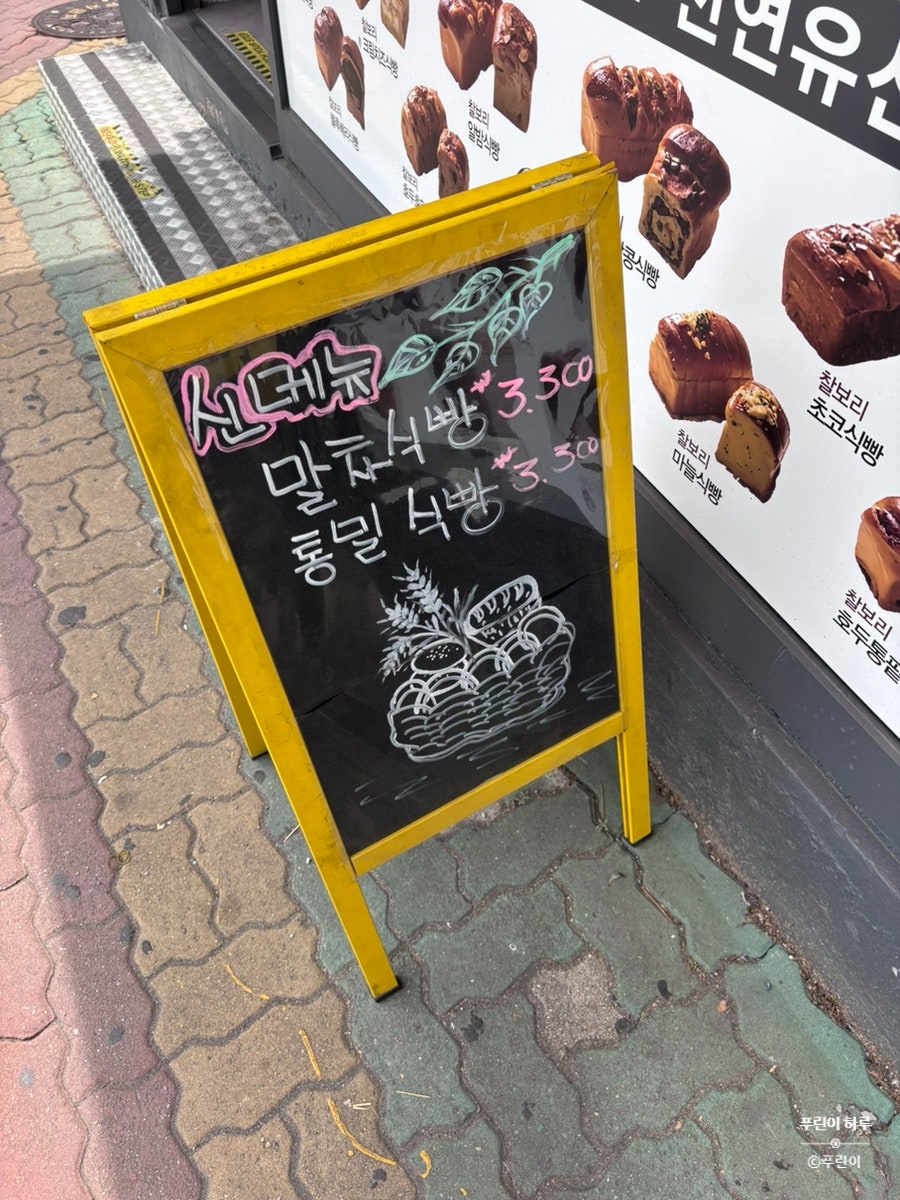 신메뉴
말차식빵 ₩3.300
통밀 식빵 ₩3.300
찰보리
크림치즈식빵
찰보리
블루베리식빵
찰보리
알밤식빵
찰보리
콩식빵
찰보리
초코식빵
찰보리
마늘식빵
찰보리
호두통팥
천연유산
푸린이 하루
©푸린이